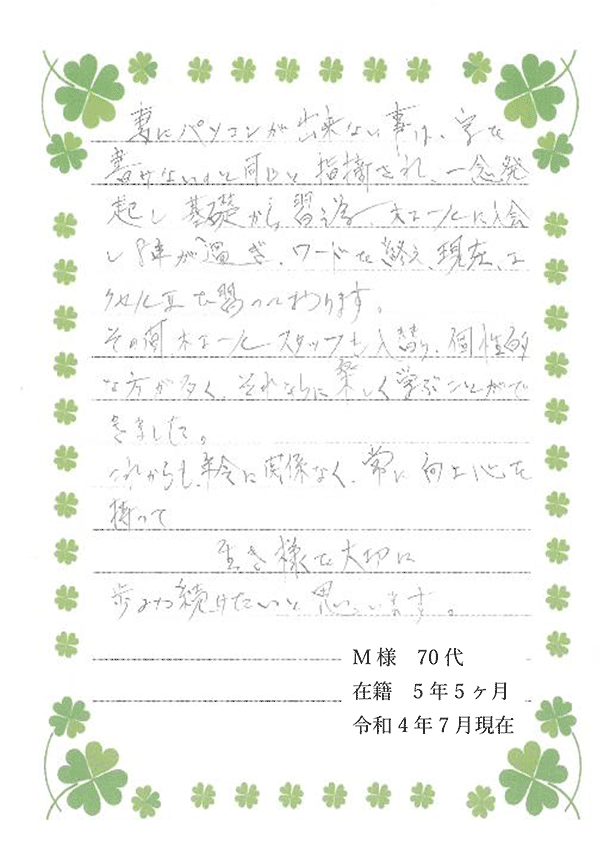 妻にパソコンが出来ない事は、字を
書けないのと同じと指摘され、一念発
起し基礎から習う為、ホエールに入会
し 年が過ぎ、ワードを終え、現在、エ
クセルⅡを習っております。
その間ホエールスタッフも入替り、個性的
な方が多く、それなりに楽しく学ぶことがで
きました。
これからも年令に関係なく、常に向上心を
持って
生き様を大切に
歩み続けたいと思います。
M様 70代
在籍 5年5ヶ月
令和4年7月現在